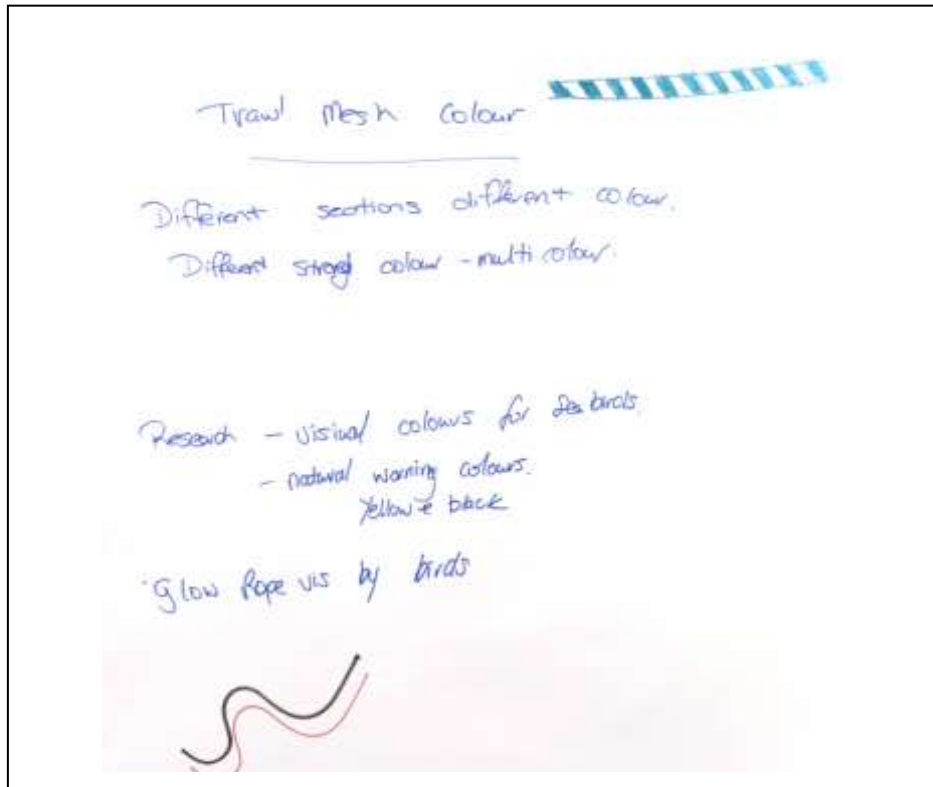 Trawl Mesh Colour
Different sections different colour.
Different strand colour - multi colour.
Research - visual colours for Seabirds.
- natural warning colours.
Yellow & black
Glow Rope vis by birds